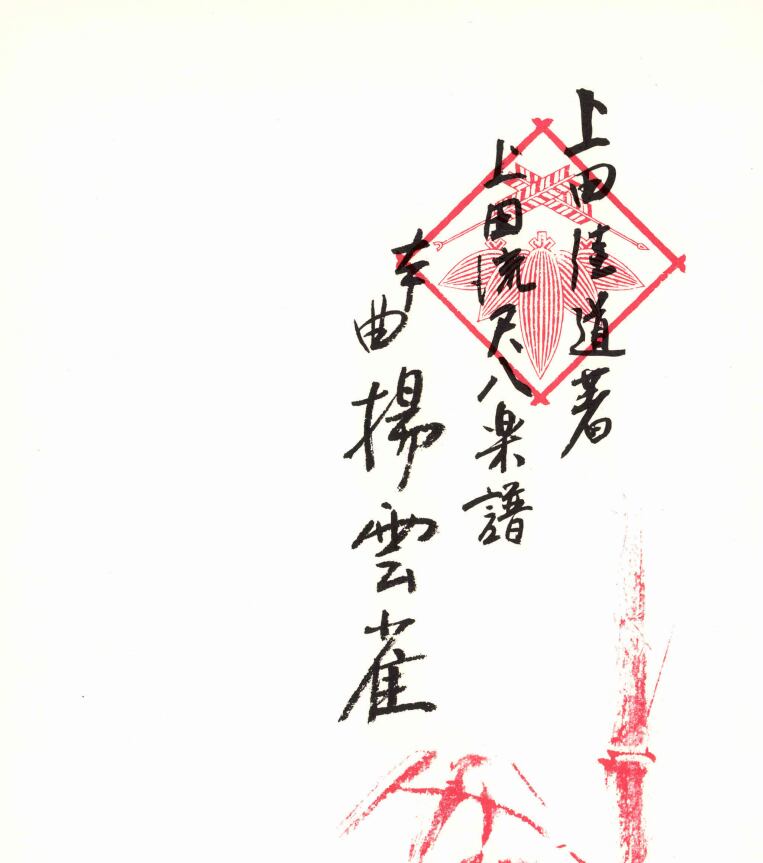 上田佳道著
上田流尺八楽譜
本曲 揚雲雀